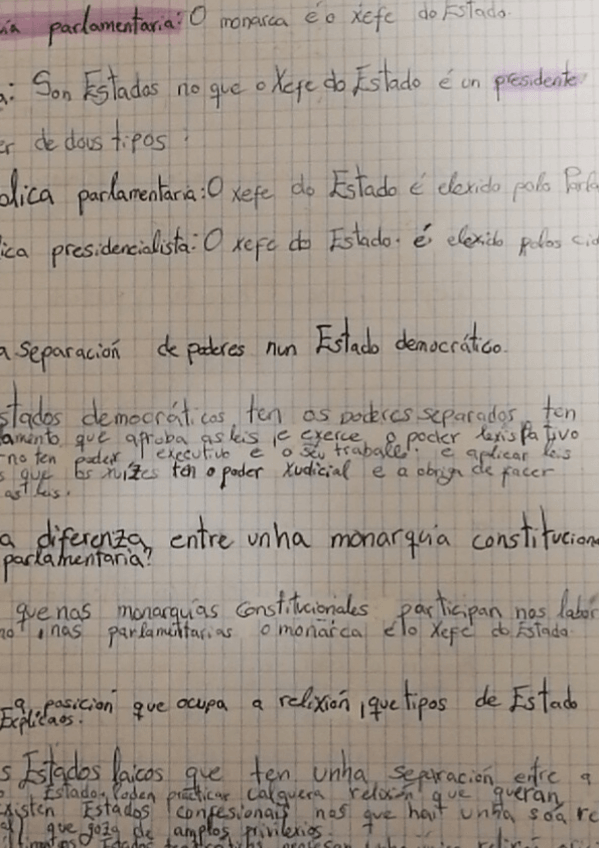 ia parlamentaria: O monarca é o xefe do Estado.
a: Son Estados no que o Xefe do Estado é un presidente
er de dous tipos:
blica parlamentaria: O xefe do Estado é elexido polo Parla
ica presidencialista: O xefe do Estado é elexido polos cid
a separación de poderes nun Estado democrático.
stados democráticos ten os poderes separados, ten
lamento que aproba as leis e exerce o poder lexislativo
no ten poder executivo e o seu traballo é aplicar leis
s que os xuízes ten o poder xudicial e a obriga de facer
as leis.
a diferenza entre unha monarquía constitucion
parlamentaria?
que nas monarquías constitucionais participan nos labor
no, nas parlamentarias o monarca é lo Xefe do Estado.
a posición que ocupa a relixión, que tipos de Estado
Explícaos.
s Estados laicos que ten unha separación entre a
o Estado, poden practicar calquera relixión que queran
xisten Estados confesionais nos que hait unha soa re
al que goza de amplos privilexios.